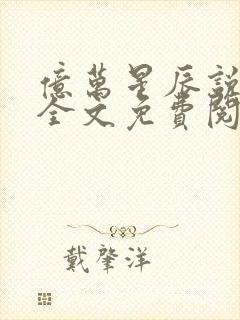 億萬星辰說
全文免費閱
戴肇洋